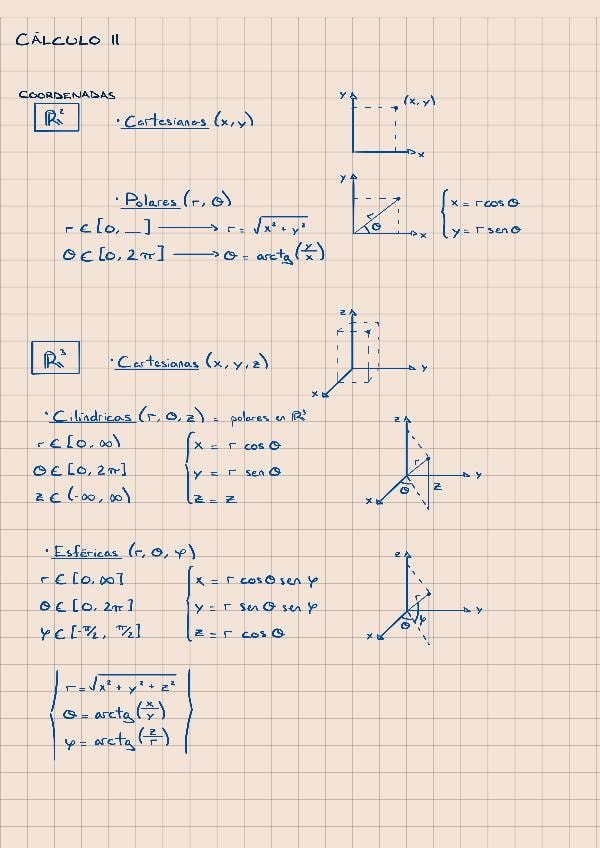 CÁLCULO II
COORDENADAS
ℝ²
· Cartesianas (x, y)
y (x, y)
x
· Polares (r, θ)
r ∈ [0, __] ⟶ r = √x² + y²
θ ∈ [0, 2π] ⟶ θ = arctg (y/x)
y r θ x
{ x = r cos θ
y = r sen θ
ℝ³
· Cartesianas (x, y, z)
z y x
· Cilíndricas (r, θ, z) = polares en ℝ³
r ∈ [0, ∞)
θ ∈ [0, 2π]
z ∈ (-∞, ∞)
{ x = r cos θ
y = r sen θ
z = z
z r y x θ z
· Esféricas (r, θ, φ)
r ∈ [0, ∞]
θ ∈ [0, 2π]
φ ∈ [-π/2, π/2]
{ x = r cos θ sen φ
y = r sen θ sen φ
z = r cos θ
z r y x θ φ
r = √x² + y² + z²
θ = arctg (x/y)
φ = arctg (z/r)